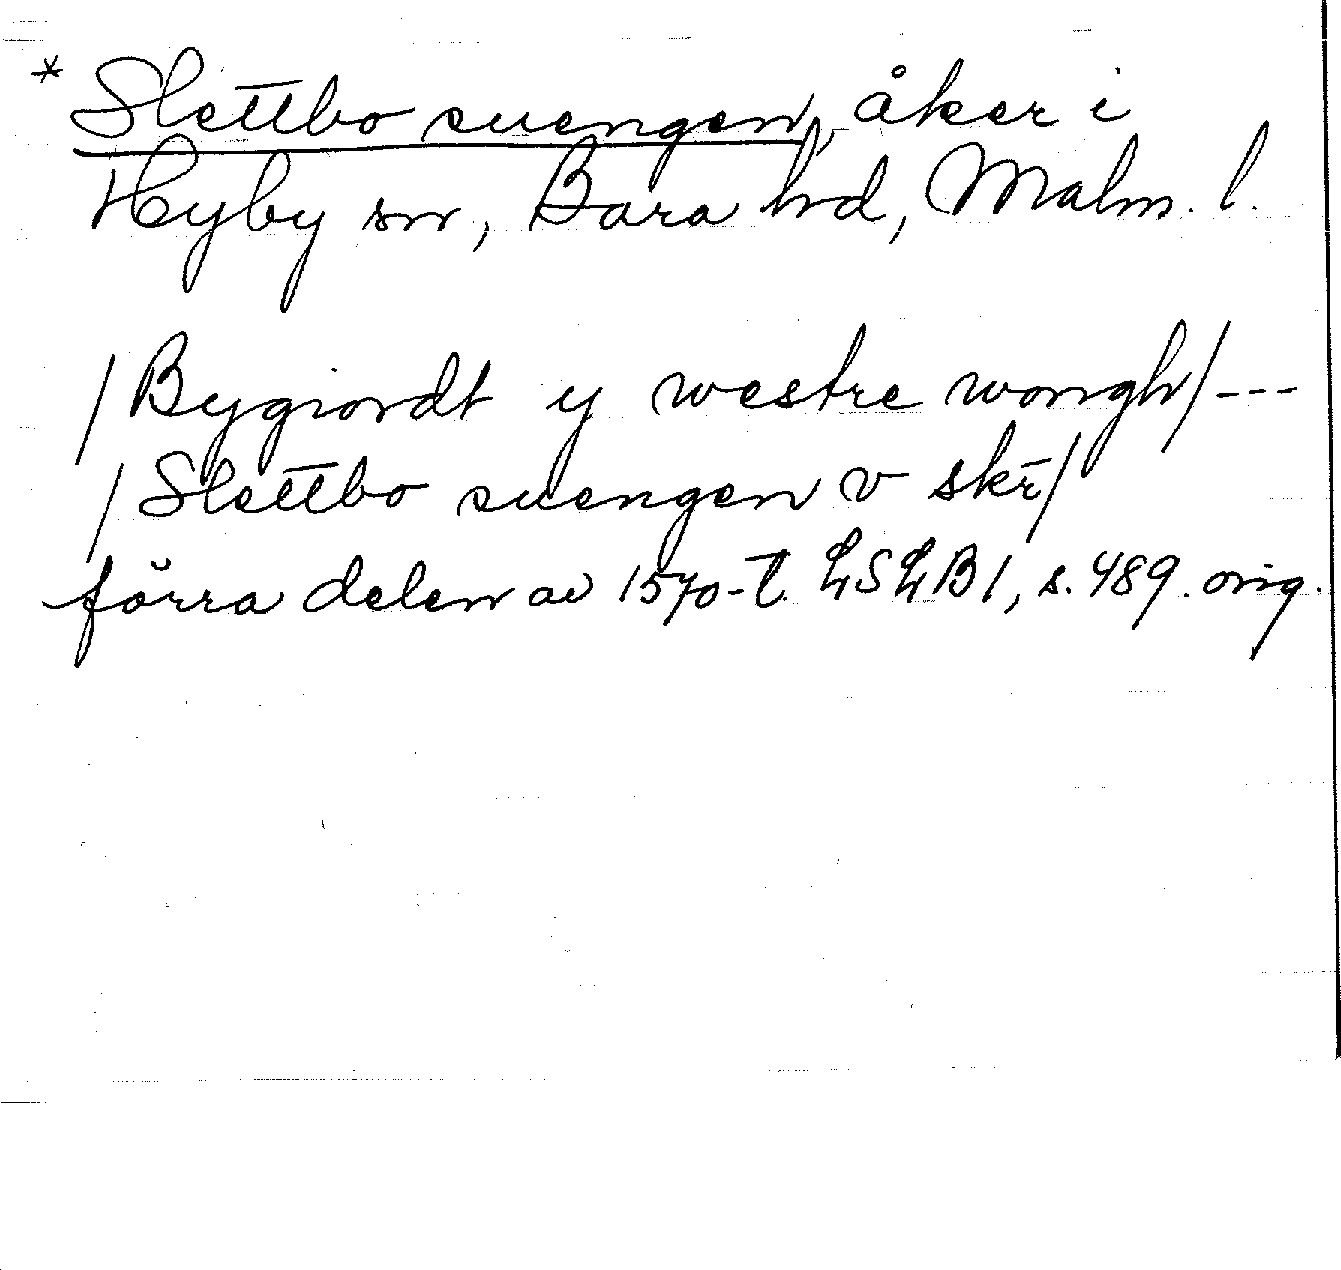 * Slettbo suengen, åker i
Hyby sn, Bara hd, Malm. l.
/Bygiordt y westre wongh/ ---
/Slettbo suengen v skr̄/
förra delen av 1570-t. LSLB1, s. 489. orig.